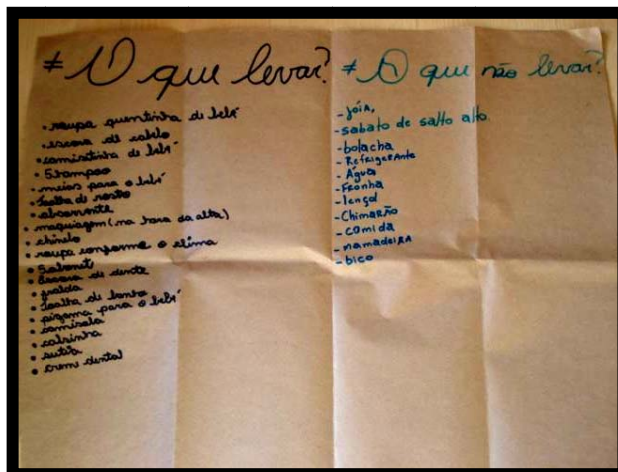 ≠ O que levar?
• roupa quentinha di bebê
• escova de cabelo
• camisitinha de bebê
• Shampoo
• meias para o bebê
• toalha de rosto
• absorvente
• maquiagem (na hora da alta)
• chinelo
• roupa conforme o clima
• Sabonete
• escova de dente
• fralda
• toalha de banho
• pijama para o bebê
• camisola
• calcinha
• sutiã
• creme dental
≠ O que não levar?
- jóia,
- sabato de salto alto
- bolacha
- Refrigerante
- Água
- Fronha
- lençol
- Chimarão
- comida
- mamadeira
- bico